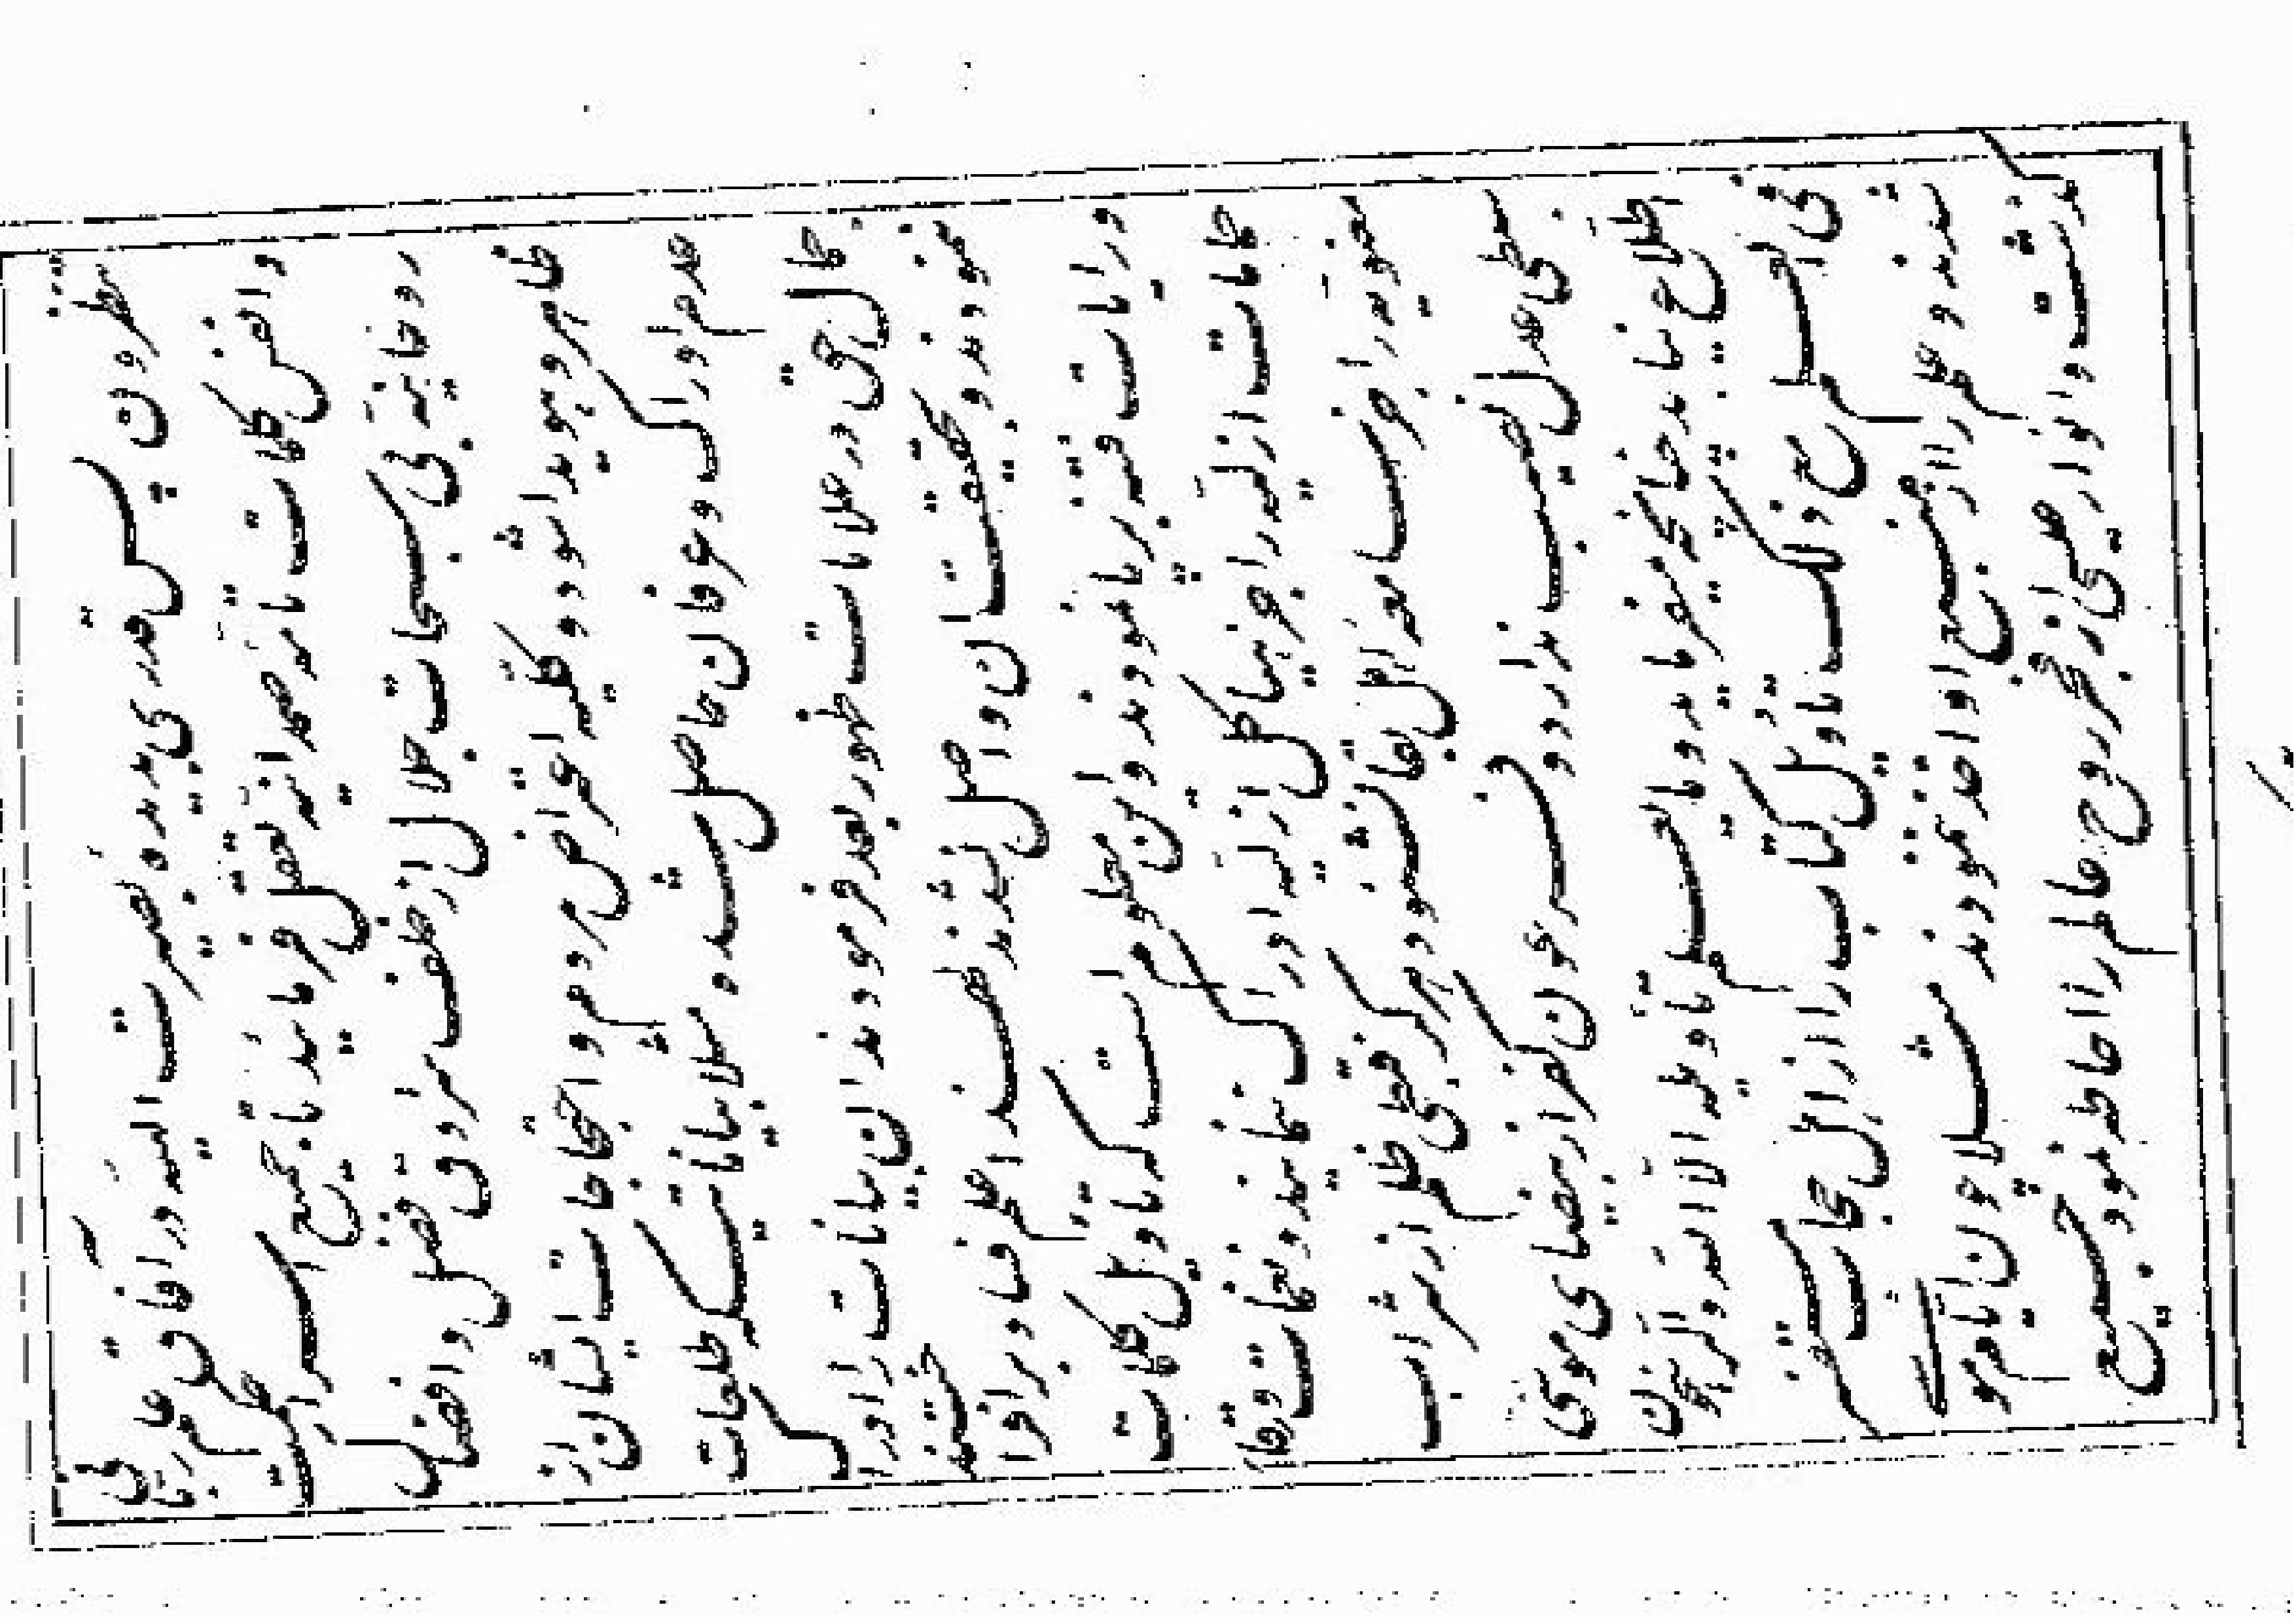 ينظرون پس قدری بديدهٔ بصيرت الهيّه در آفاق علم ربّانی
و انفس کلمات تامّه صمدانيّه تعقّل فرمائيد تا جميع اسرار حکمت
روحانيّه بی سبحات جلال از خلف سرادق فضل و افضال
ظاهر و هويدا شود و کلّيّه اعتراض مردم و احتجاجات ايشان از
عدم ادراک و عرفان حاصل شده مثلاً بياناتيکه طلعات
جمال حق در علامات ظهور بعد فرمودند آن بيانات را ادراک
ننمودند و بحقيقت آن واصل نشدند لهذا علم فساد برافراختند
و رايات فتنه برپا نمودند و اين معلوم است که تأويل کلمات
حمامات ازليّه را جز هياکل ازليّه ادراک ننمايد و نغمات ورقاء
معنويّه را جز سامعه اهل بقا نشنود هرگز قبطی ظلم از شراب
سبطی عدل نصيب ندارد و فرعون کفر از بيضای موسی
اطّلاع نيابد چنانچه ميفرمايد و ما يعلم تأويله الّا اللّه و الرّاسخون
فی العلم مع ذلک تأويل کتاب را از اهل حجاب مستفسر
شدند و علم را از منبع او اخذ ننمودند مثلا چون ايّام موسی
گذشت و انوار عيسی از فجر روح عالم را احاطه نمود جميع